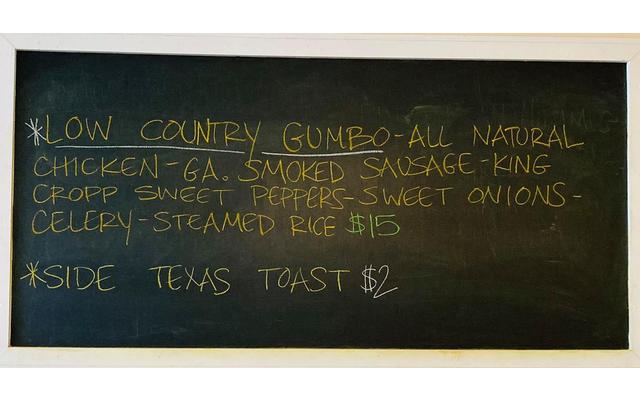 *LOW COUNTRY GUMBO-ALL NATURAL
CHICKEN-GA. SMOKED SAUSAGE-KING
CROPP SWEET PEPPERS-SWEET ONIONS-
CELERY-STEAMED RICE $15
*SIDE TEXAS TOAST $2